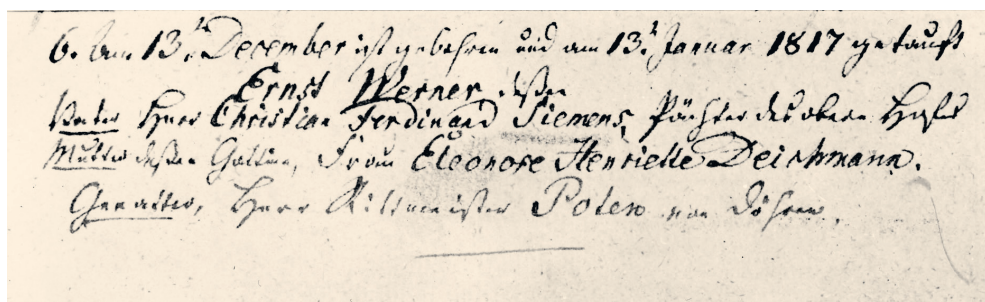 6. Am 13t. December ist gebohren und am 13t. Januar 1817 getauft
Ernst Werner deßen
Vater Herr Christian Ferdinand Siemens, Pächter des obern Hofes
Mutter deßen Gattinn, Frau Eleonore Henriette Deichmann.
Gevatter, Herr Rittmeister Poten von Döhren.